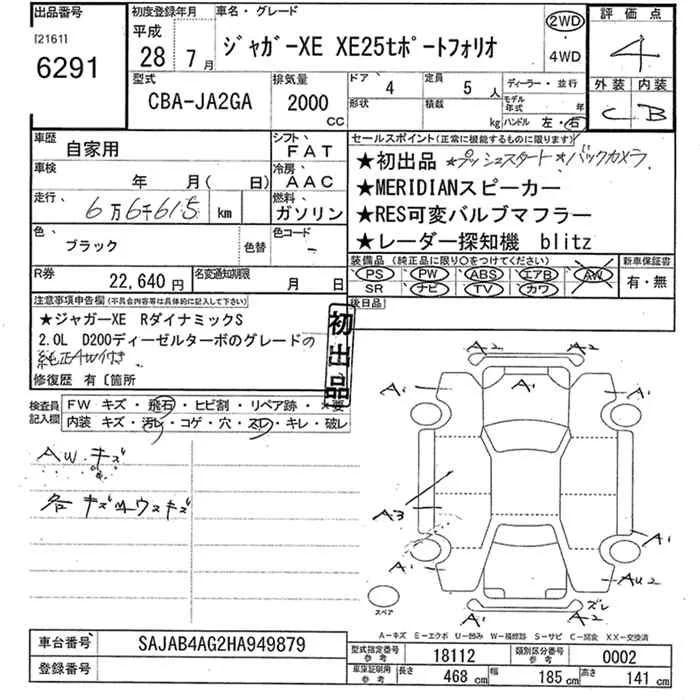 出品番号 初度登録年月 車名・グレード 2WD 評価点
[2161] 平成
6291 28年7月 ジャガーXE XE25tポートフォリオ 4WD 4
型式 排気量 ドア 4 定員 5人 ディーラー・並行 外装 内装
CBA-JA2GA 2000cc 形状 積載 kg モデル年式 年 C B
ハンドル 左・右
車歴 自家用 シフト FAT セールスポイント(正常に機能するものに限ります)
車検 年 月( 日) 冷房 AAC ★初出品 ★プッシュスタート ★バックカメラ
走行 6万6千615 km 燃料 ガソリン ★MERIDIANスピーカー
★RES可変バルブマフラー
色 ブラック 色替 色コード - ★レーダー探知機 blitz
装備品(純正品に限り○をつけてください) 新車保証書
R券 22,640円 名変通知期限 月 日 PS PW ABS エアB AW 有・無
SR ナビ TV カワ
注意事項申告欄(不具合内容等は具体的に記入して下さい) 後日品
★ジャガーXE RダイナミックS
2.0L D200ディーゼルターボのグレードの
純正AW付き
修復歴 有〔箇所
初出品
検査員記入欄 FW キズ・飛石・ヒビ割・リペア跡・×要
内装 キズ・汚レ・コゲ・穴・スレ・キレ・破レ
AW.キズ
各キズ
A2 A2
A1 A1
A3
A1 A1
AU2
A1 A2 ズレ
スペア
A-キズ E-エクボ U-凹み W-補修跡 S-サビ C-腐食 XX-交換済
車台番号 SAJAB4AG2HA949879 型式指定番号 参考 18112 類別区分番号 参考 0002
登録番号 車庫証明用 参考 長さ 468 cm 幅 185 cm 高さ 141 cm